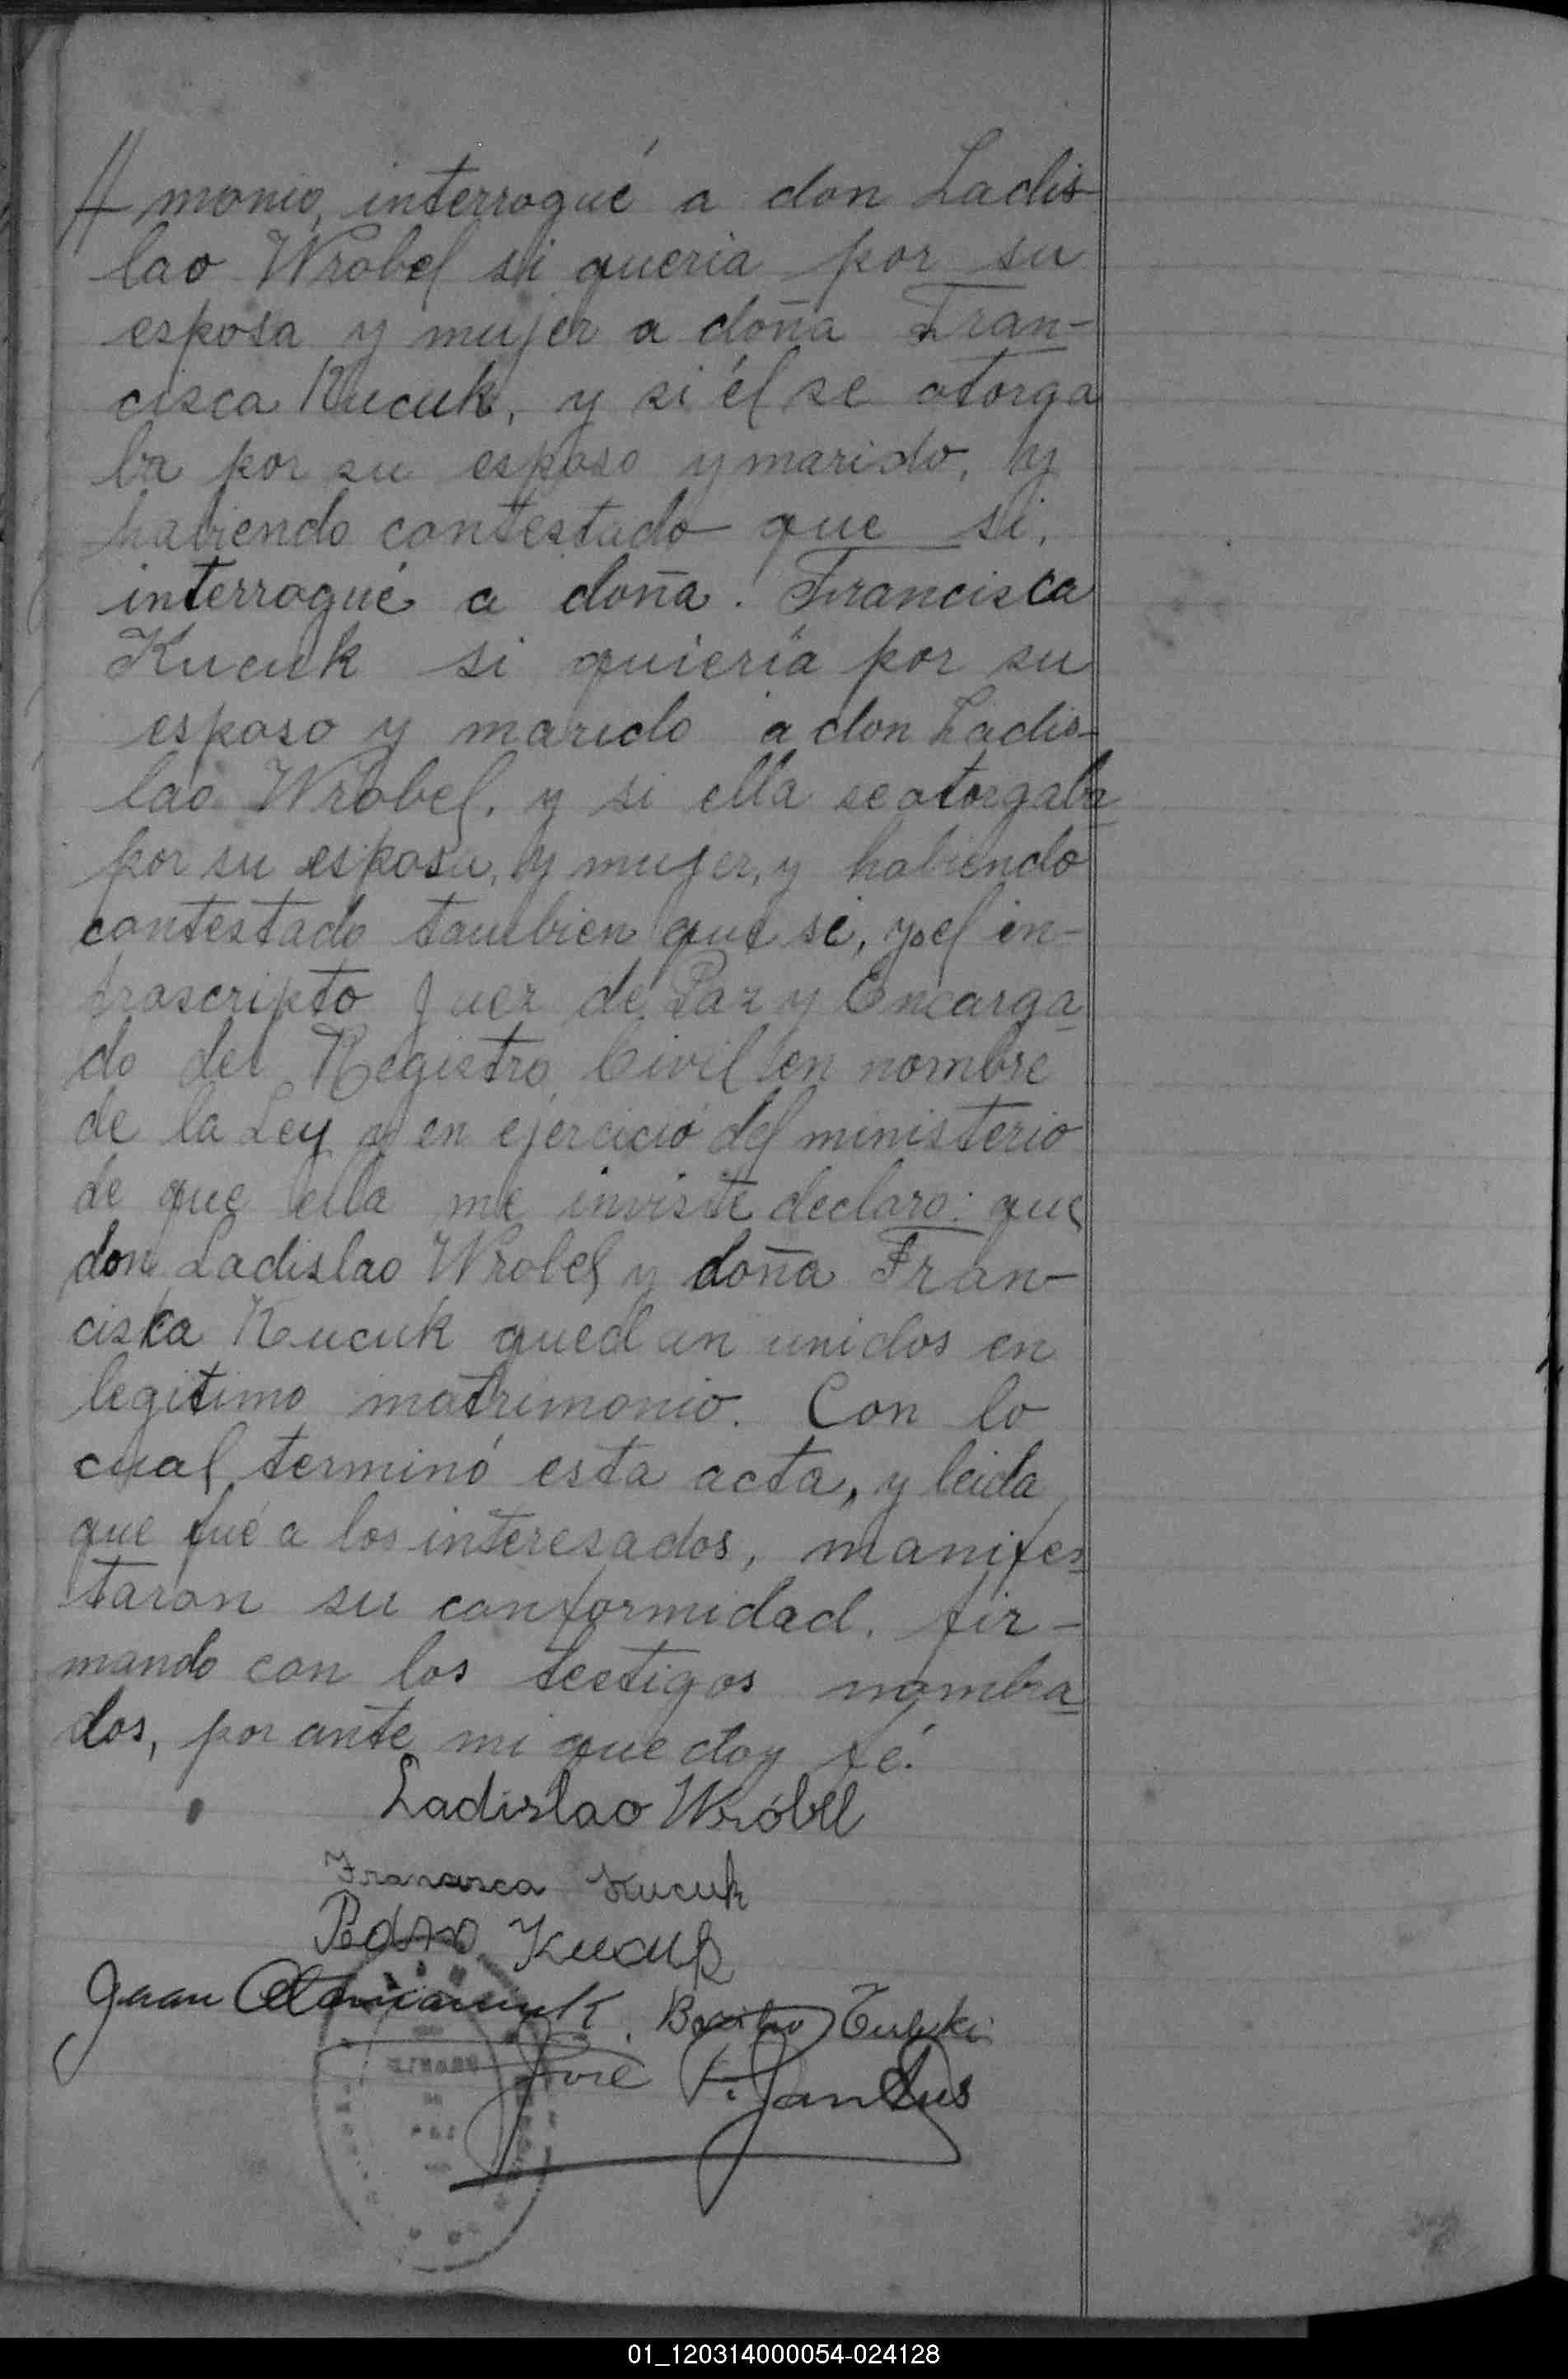 monio, interrogué a don Ladis-
lao Wrobel si queria por su
esposa y mujer a doña Fran-
cisca Kucuk, y si él se otorga
ba por su esposo y marido, y
habiendo contestado que si,
interrogué a doña Francisca
Kucuk si quiería por su
esposo y marido a don Ladis-
lao Wrobel, y si ella se otorgaba
por su esposa, y mujer, y habiendo
contestado tambien que si, yo el in-
frascripto Juez de Paz y Encarga
do del Registro Civil en nombre
de la Ley y en ejercicio del ministerio
de que ella me inviste declaro: que
don Ladislao Wrobel y doña Fran-
cisca Kucuk quedan unidos en
legitimo matrimonio. Con lo
cual terminó esta acta, y leida
que fué a los interesados, manifes
taron su conformidad, fir-
mando con los testigos nombra
dos, por ante mi que doy fé.
Ladislao Wróbel
Francisca Kucuk
Pedro Kucuk
Juan
José F.
01_120314000054-024128